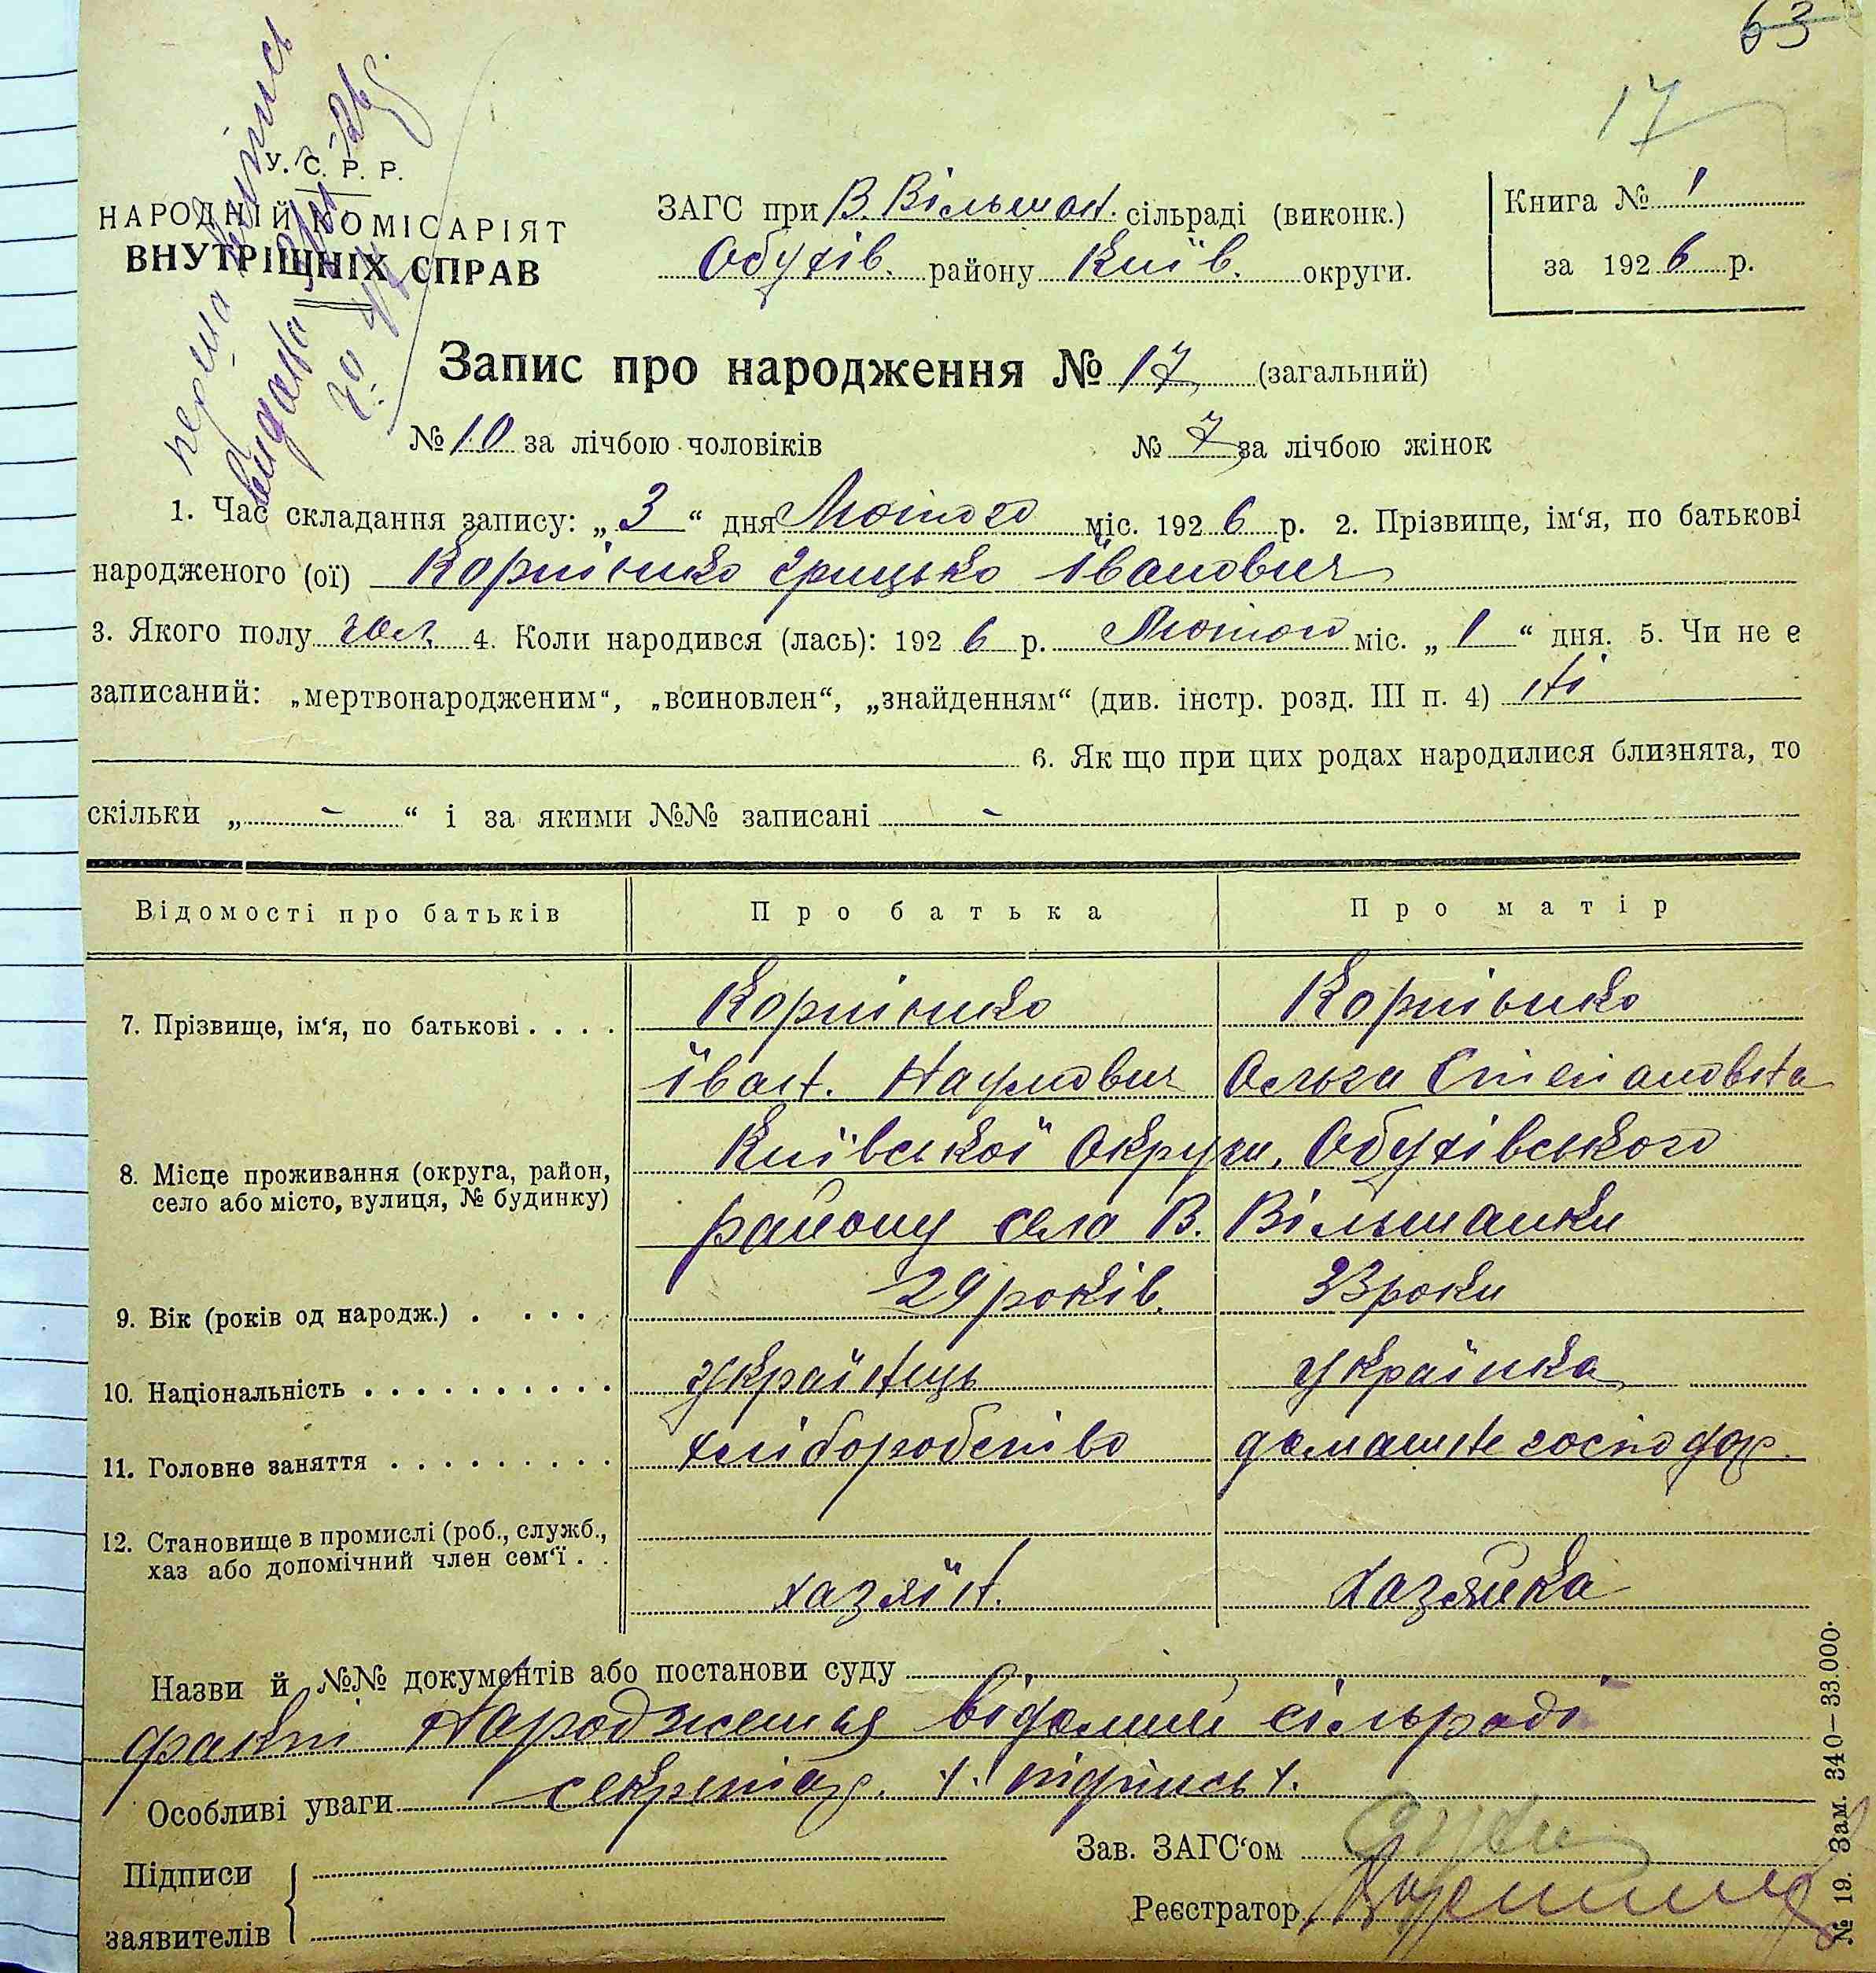 63
17
У. С. Р. Р.
НАРОДНІЙ КОМІСАРІЯТ
ВНУТРІЩНІХ СПРАВ
перша випись
видана
20
ЗАГС при В. Вільшан. сільраді (виконк.)
Обухів. району Київ. округи.
Книга № 1
за 1926 р.
Запис про народження № 17 (загальний)
№ 10 за лічбою чоловіків № 7 за лічбою жінок
1. Час складання запису: „3“ дня Лютого міс. 1926 р. 2. Прізвище, ім‘я, по батькові
народженого (ої) Корнієнко Грицько Іванович
3. Якого полу чол. 4. Коли народився (лась): 1926 р. Лютого міс. „1“ дня. 5. Чи не є
записаний: „мертвонародженим“, „всиновлен“, „знайденням“ (див. інстр. розд. III п. 4) ні
6. Як що при цих родах народилися близнята, то
скільки „ - “ і за якими №№ записані -
Відомості про батьків Про батька Про матір
7. Прізвище, ім‘я, по батькові . . . . Корнієнко Корнієнко
Іван. Наумович Ольга Степановна
8. Місце проживання (округа, район, село або місто, вулиця, № будинку) Київської Округи, Обухівського
району село В. Вільшанки
9. Вік (років од народж.) . . . . . 29 років. 33 роки
10. Національність . . . . . . . . . . . Українець Українка
11. Головне заняття . . . . . . . . . . хліборобство домашне господар.
12. Становище в промислі (роб., служб.,
хаз або допомічний член сем‘ї . . хазяїн. хазяйка
Назви й №№ документів або постанови суду
факт народження відомий сільраді
Особливі уваги секретар. підпись
Підписи
заявителів
Зав. ЗАГС‘ом
Реєстратор
№ 19. Зам. 340—33.000.